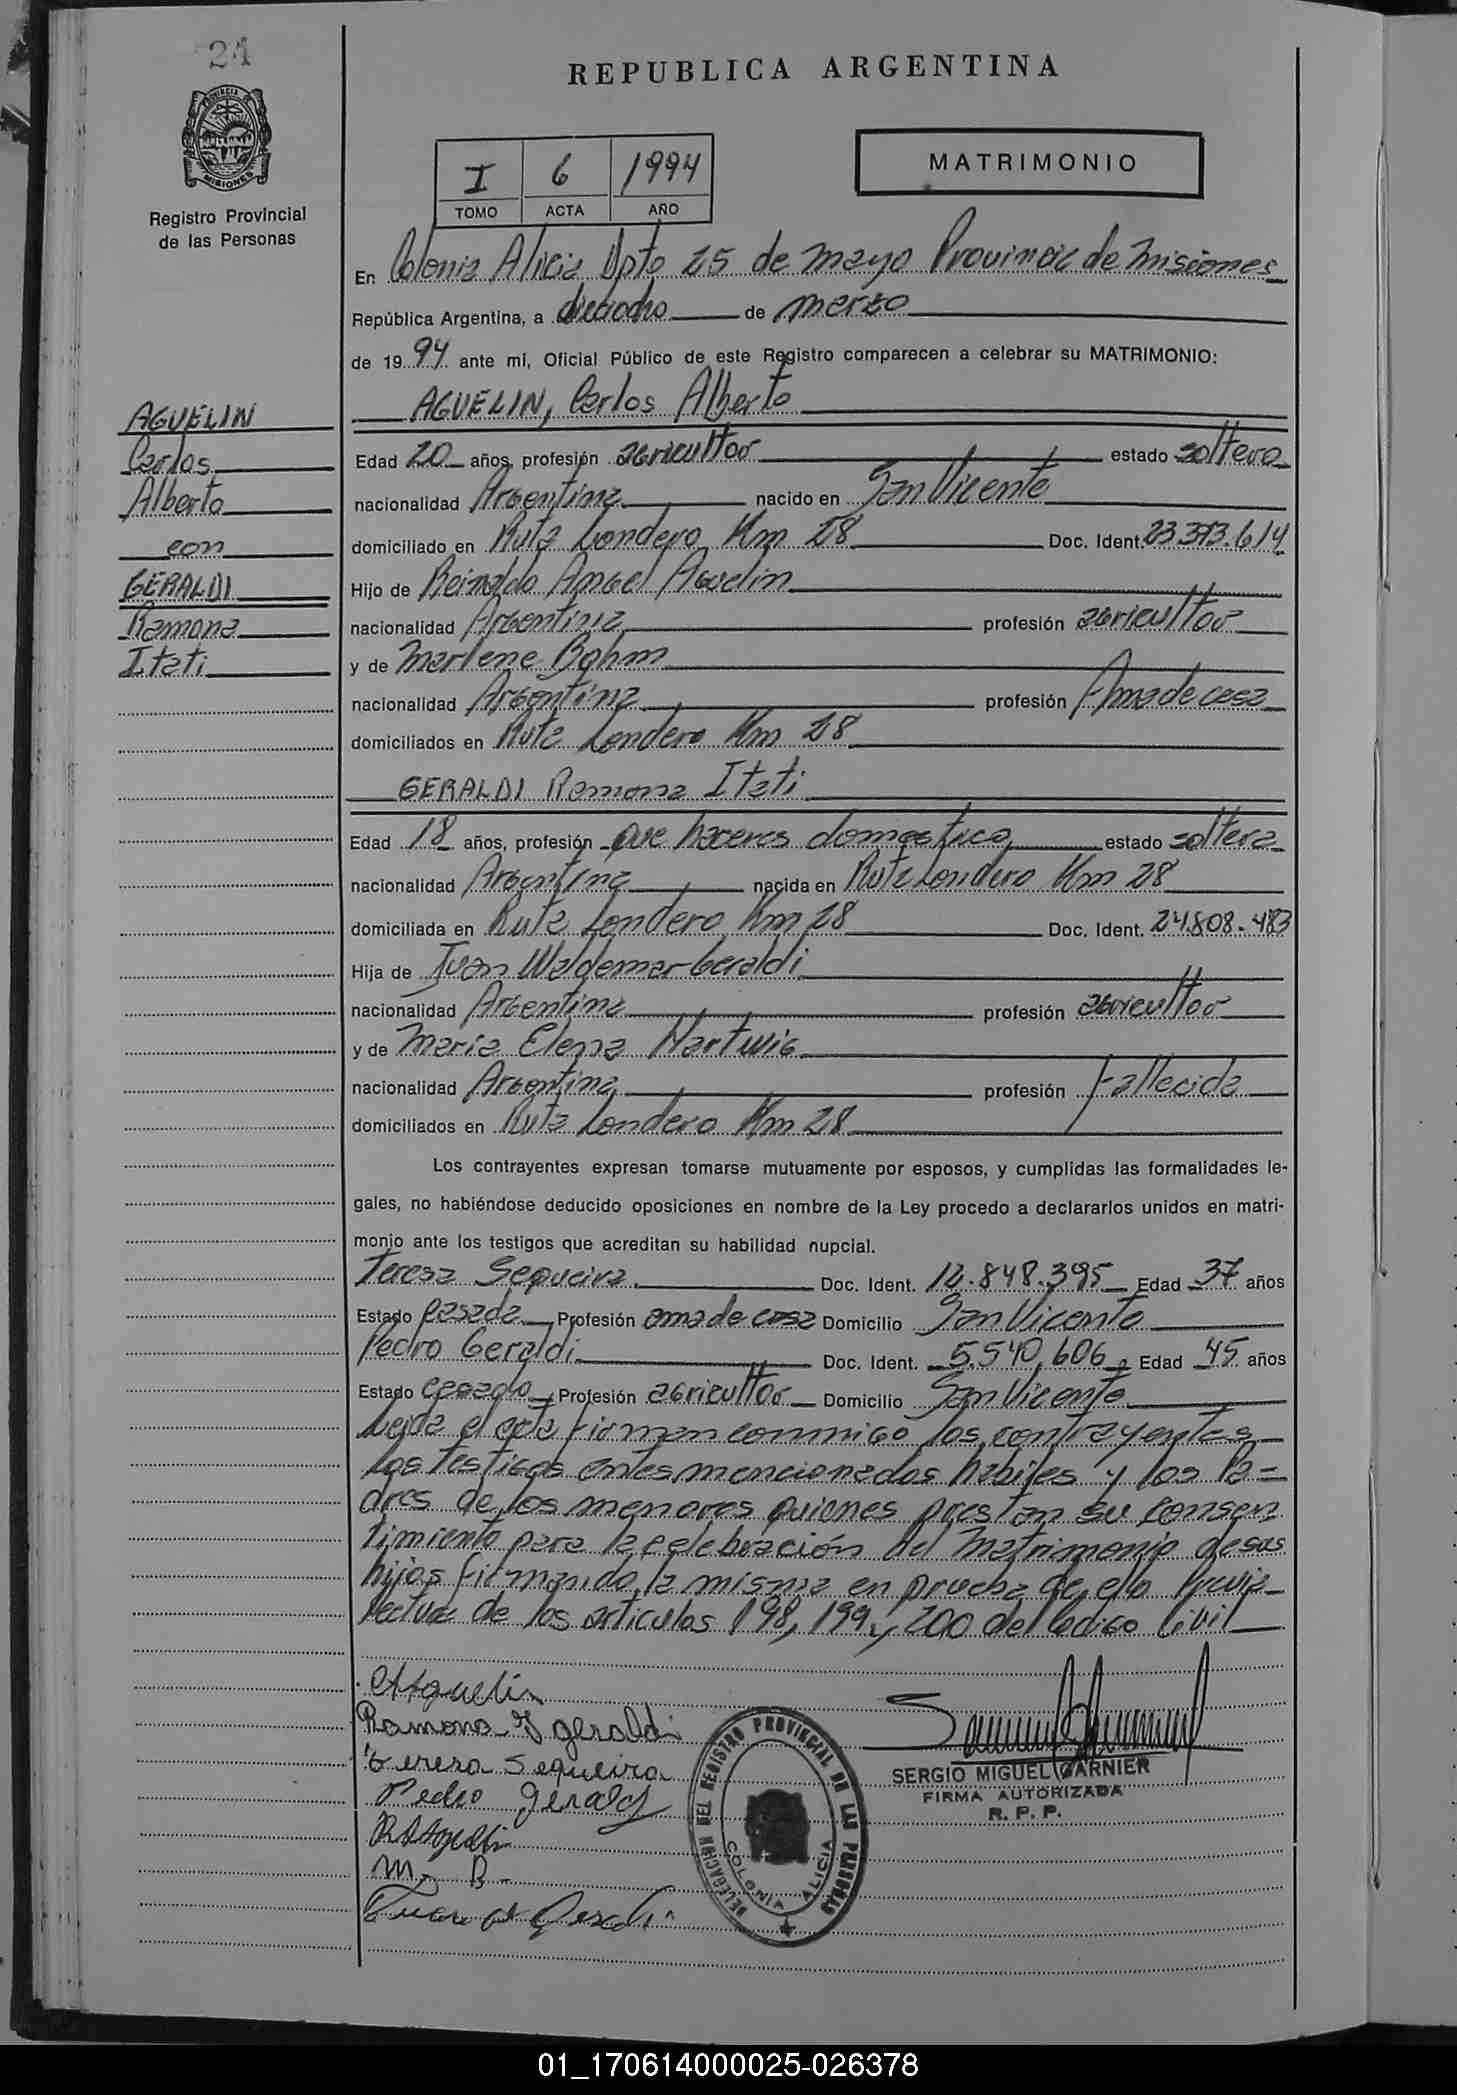 24
REPUBLICA ARGENTINA
PROVINCIA DE
MISIONES
Registro Provincial
de las Personas
I 6 1994
TOMO ACTA AÑO
MATRIMONIO
En Colonia Alicia Dpto 25 de mayo Provincia de misiones
República Argentina, a dieciocho de marzo
de 1994 ante mi, Oficial Público de este Registro comparecen a celebrar su MATRIMONIO:
AGUELIN, Carlos Alberto
AGUELIN
Carlos
Alberto
con
GERALDI
Ramona
Itati
Edad 20 años, profesión agricultor estado soltero
nacionalidad Argentina nacido en San Vicente
domiciliado en Ruta Londero Km 28 Doc. Ident. 23.373.614
Hijo de Reinaldo Angel Aguelin
nacionalidad Argentina profesión agricultor
y de Marlene Bohm
nacionalidad Argentina profesión Ama de casa
domiciliados en Ruta Londero Km 28
GERALDI Ramona Itati
Edad 18 años, profesión que haceres domestico estado soltera
nacionalidad Argentina nacida en Ruta Londero Km 28
domiciliada en Ruta Londero Km 28 Doc. Ident. 24.808.483
Hija de Juan Waldemar Geraldi
nacionalidad Argentina profesión agricultor
y de Maria Elena Hartwig
nacionalidad Argentina profesión fallecida
domiciliados en Ruta Londero Km 28
Los contrayentes expresan tomarse mutuamente por esposos, y cumplidas las formalidades le-
gales, no habiéndose deducido oposiciones en nombre de la Ley procedo a declararlos unidos en matri-
monio ante los testigos que acreditan su habilidad nupcial.
Teresa Sequeira Doc. Ident. 12.848.395 Edad 37 años
Estado casada Profesión ama de casa Domicilio San Vicente
Pedro Geraldi Doc. Ident. 5.540.606 Edad 45 años
Estado casado Profesión agricultor Domicilio San Vicente
Leida el acta firman conmigo los contrayentes
los testigos antes mencionados habiles y los Pa=
dres de los menores quienes prestan su consen
timiento para la celebración del Matrimonio de sus
hijos firmando la misma en prueba de ello Previa
lectura de los articulos 198, 199 y 200 del Codigo Civil
CAAguelin
Ramona I geraldi
Teresa Sequeira
Pedro geraldi
RAAguelin
M. B.
Juan W Geraldi
DELEGACION DEL REGISTRO PROVINCIAL DE LAS PERSONAS
COLONIA ALICIA
SERGIO MIGUEL GARNIER
FIRMA AUTORIZADA
R. P. P.
01_170614000025-026378